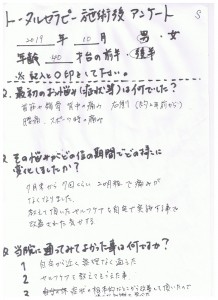 トータルセラピー施術後アンケート S
2019 年 10 月 男・女
年齢 40 才台の前半・後半
※記入と○印をして下さい。
Q.最初のお悩み(症状等)は何でした?
首筋から 背中の痛み
腰痛、スポーツ時の痛み
Q.その悩みがどの位の期間でどの様に
変化しましたか?
7月末から 週1くらい 2か月程で痛みが
なくなりました。
教えて頂いたセルフケアも自宅で実施する事で
改善された気がする
Q 当院に通ってみてよかった事は何ですか?
1 自宅から近く無理なく通えた
2 セルフケアを教えてもらえた事
3